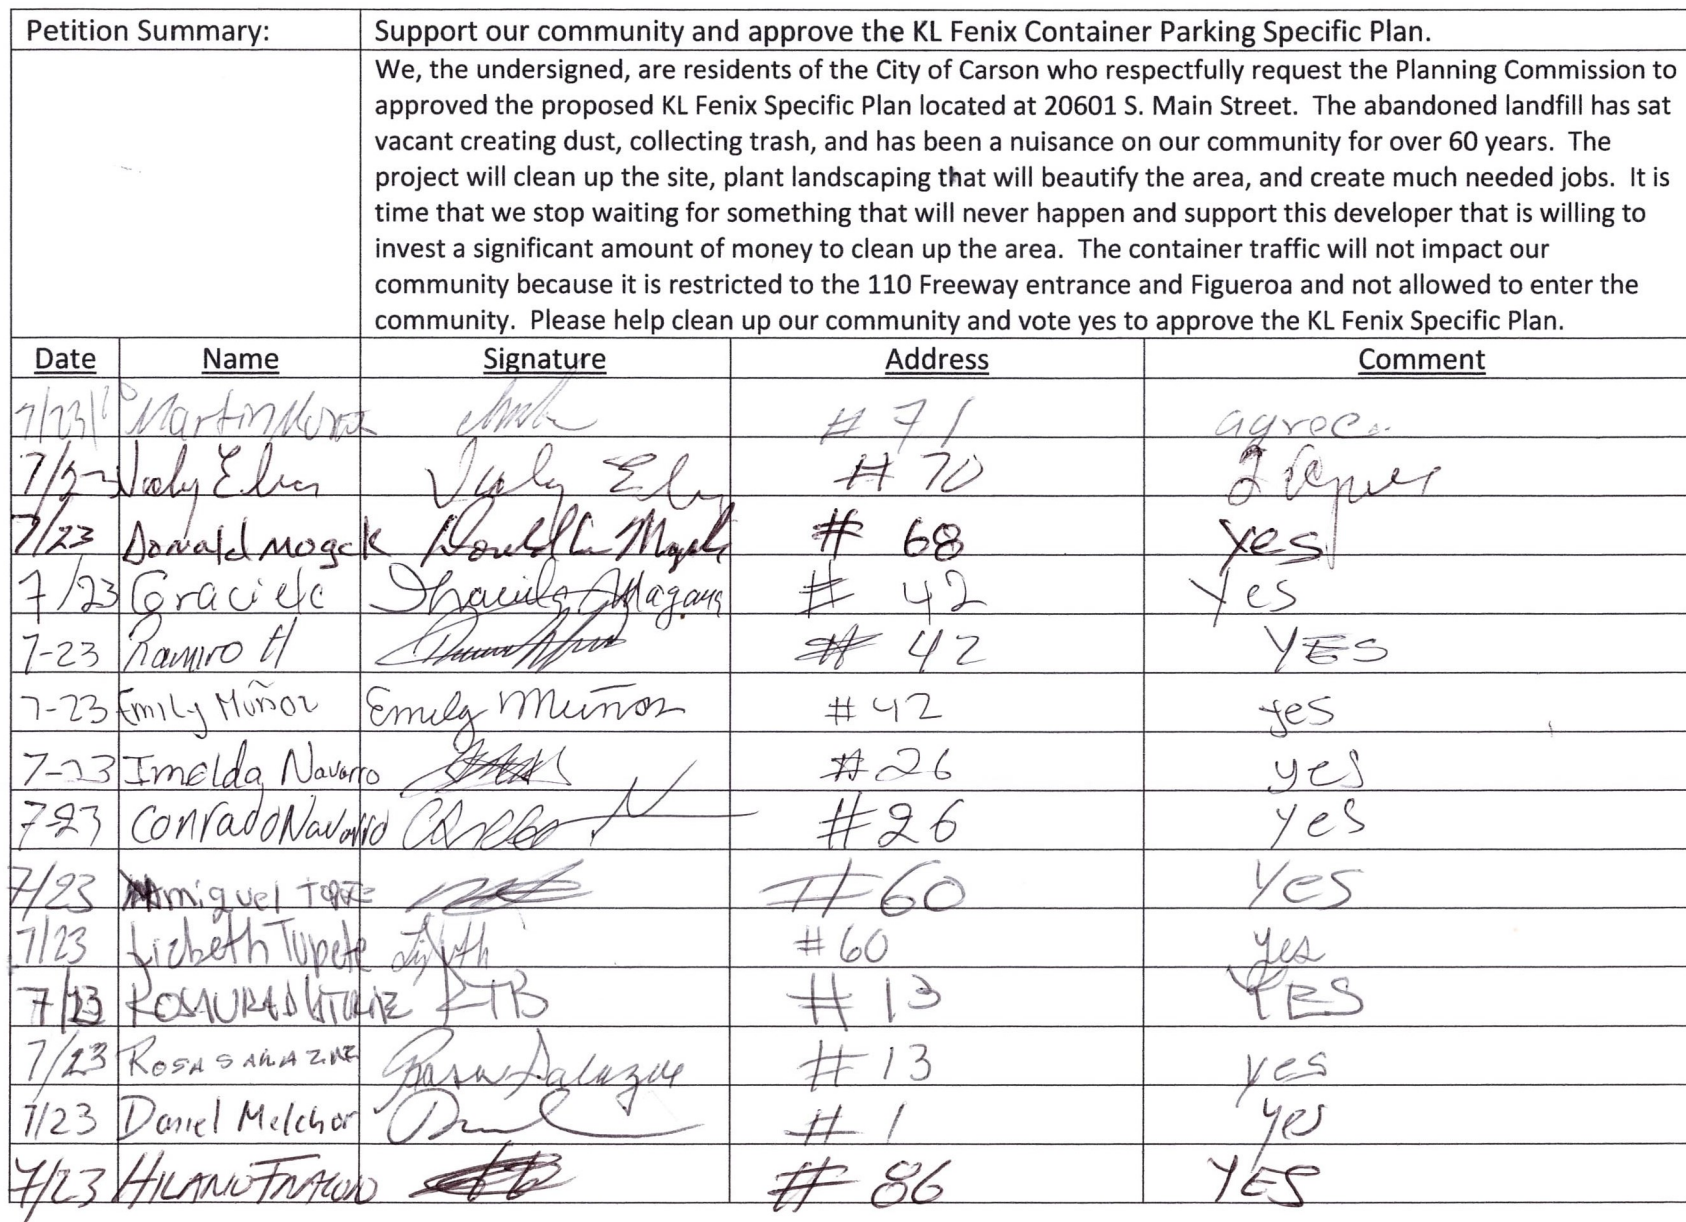 Petition Summary: Support our community and approve the KL Fenix Container Parking Specific Plan.
We, the undersigned, are residents of the City of Carson who respectfully request the Planning Commission to
approved the proposed KL Fenix Specific Plan located at 20601 S. Main Street. The abandoned landfill has sat
vacant creating dust, collecting trash, and has been a nuisance on our community for over 60 years. The
project will clean up the site, plant landscaping that will beautify the area, and create much needed jobs. It is
time that we stop waiting for something that will never happen and support this developer that is willing to
invest a significant amount of money to clean up the area. The container traffic will not impact our
community because it is restricted to the 110 Freeway entrance and Figueroa and not allowed to enter the
community. Please help clean up our community and vote yes to approve the KL Fenix Specific Plan.
Date Name Signature Address Comment
7/23 Martin # 71 agree
# 70
7/23 Donald Mogck # 68 yes
7/23 Graciele Magana # 42 Yes
7-23 Ramiro H # 42 YES
7-23 Emily Muñoz Emily Muñoz # 42 yes
7-23 Imelda Navarro # 26 yes
7-23 Conrado Navarro # 26 yes
7/23 Miguel # 60 YES
7/23 Lizbeth Tupete # 60 yes
7/23 RTB # 13 YES
7/23 Rosa Rosa Salazar # 13 yes
7/23 Daniel Melchor # 1 yes
7/23 # 86 YES